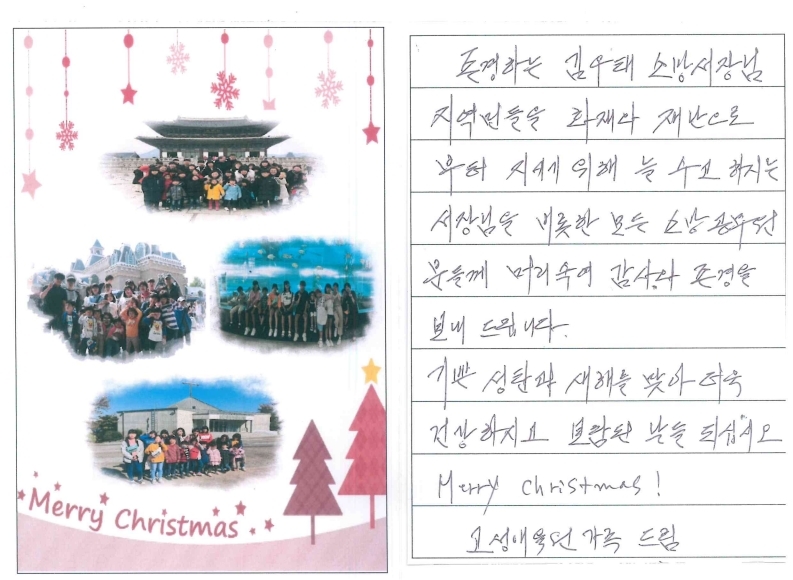 Merry Christmas
존경하는 김우태 소방서장님
지역민들을 화재와 재난으로
부터 지키기 위해 늘 수고 하시는
서장님을 비롯한 모든 소방공무원
분들께 머리숙여 감사와 존경을
보내 드립니다.
기쁜 성탄과 새해를 맞아 더욱
건강 하시고 보람된 날들 되십시오
Merry christmas!
고성애육원 가족 드림